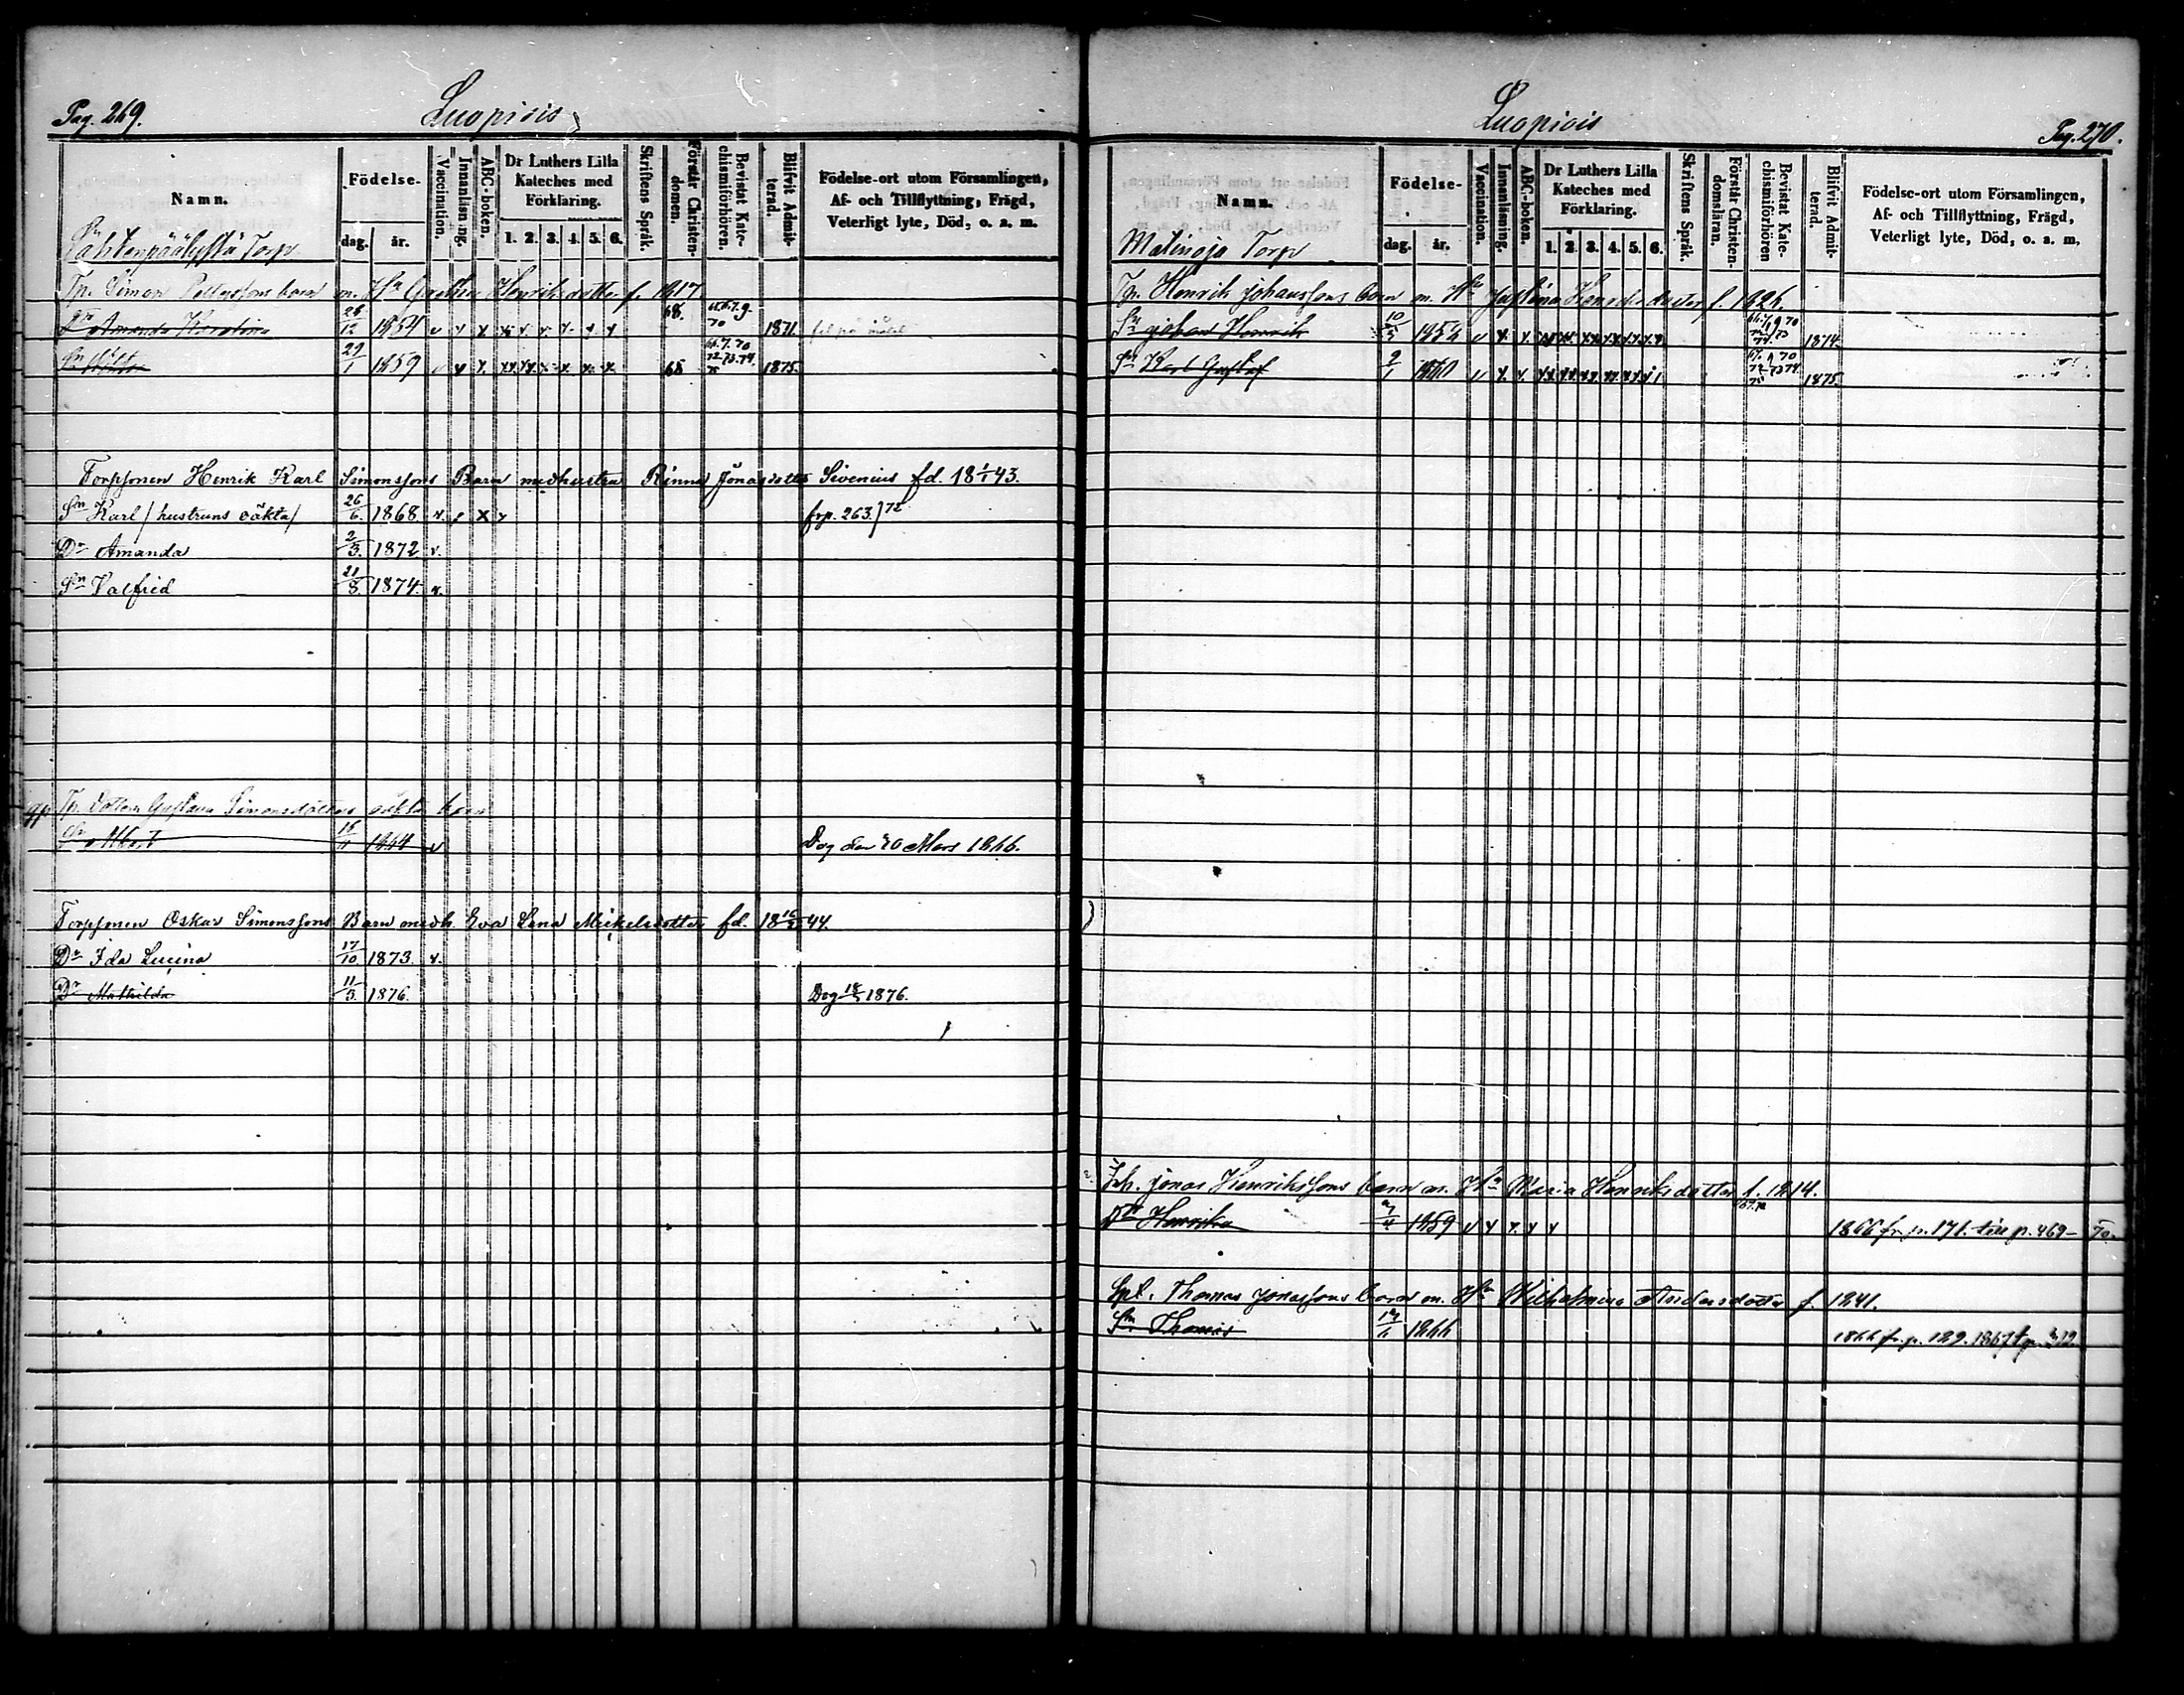 Pag. 269.
Luopiois
Namn.
Födelse-
dag.
år.
Vaccination.
Innanläsning.
ABC-boken.
Dr Luthers Lilla
Kateches med
Förklaring.
1. 2. 3. 4. 5. 6.
Skriftens Språk.
Förstår Christen-
domen.
Bevistat Kate-
chismiförhören.
Blifvit Admit-
terad.
Födelse-ort utom Församlingen,
Af- och Tillflyttning, Frägd,
Veterligt lyte, Död, o. a. m.
Torp
Tp. Simon Petterssons barn m. Hu Gretha Henriksdotter f. 1817
Amanda Kristina 12 1854 v x x x x x x x x 68. 70 1871.
Sn 29/1 1859 v x x xx xx x x x x 68 72.73.74. 75 1875.
Torpsonen Henrik Karl Simonssons Barn med hustru Rinna Jonasdotter Sivenius fd. 18 1/1 43.
Sn Karl / hustruns oäkta / 26/6. 1868 v. x x frp. 263.) 72
Dr Amanda 2/3. 1872 v.
Sn Valfrid 21/8 1874. v.
Tp. dottern Gustava Simonsdotters oäkta barn
Sn Albert 15 1864 v Dog den 20 Mars 1866.
Torpsonen Oskar Simonssons Barn med h. Eva Lena Mickelsdotter fd. 18 44.
Dr Ida Lucina 17/10 1873. v.
Dr Mathilda 11/3. 1876. Dog 18 1876.
Luopiois
Pag. 270.
Namn.
Födelse-
dag.
år.
Vaccination.
Innanläsning.
ABC-boken.
Dr Luthers Lilla
Kateches med
Förklaring.
1. 2. 3. 4. 5. 6.
Skriftens Språk.
Förstår Christen-
domsläran.
Bevistat Kate-
chismiförhören
Blifvit Admit-
terad.
Födelse-ort utom Församlingen,
Af- och Tillflyttning, Frägd,
Veterligt lyte, Död, o. a. m.
Matinoja Torp
Tp. Henrik Johanssons barn m. Hu Justina Henriksdotter f. 1826.
Sn Johan Henrik 10 1854 v x. x. 1874.
Sn Karl Gustaf 2/1 1860 v x. x. 1875
Inh. Jonas Henrikssons barn m. Hu Maria Henriksdotter f. 1814.
Dr Henrika 1859 v x x. x x 1866 fr. p. 171. till p. 469 - 70.
Spl. Thomas Jonassons barn m. Hu Wilhelmina Andersdotter f. 1841.
Sn Thomas 1866 1866 fr. p. 129. 1867 t. p.